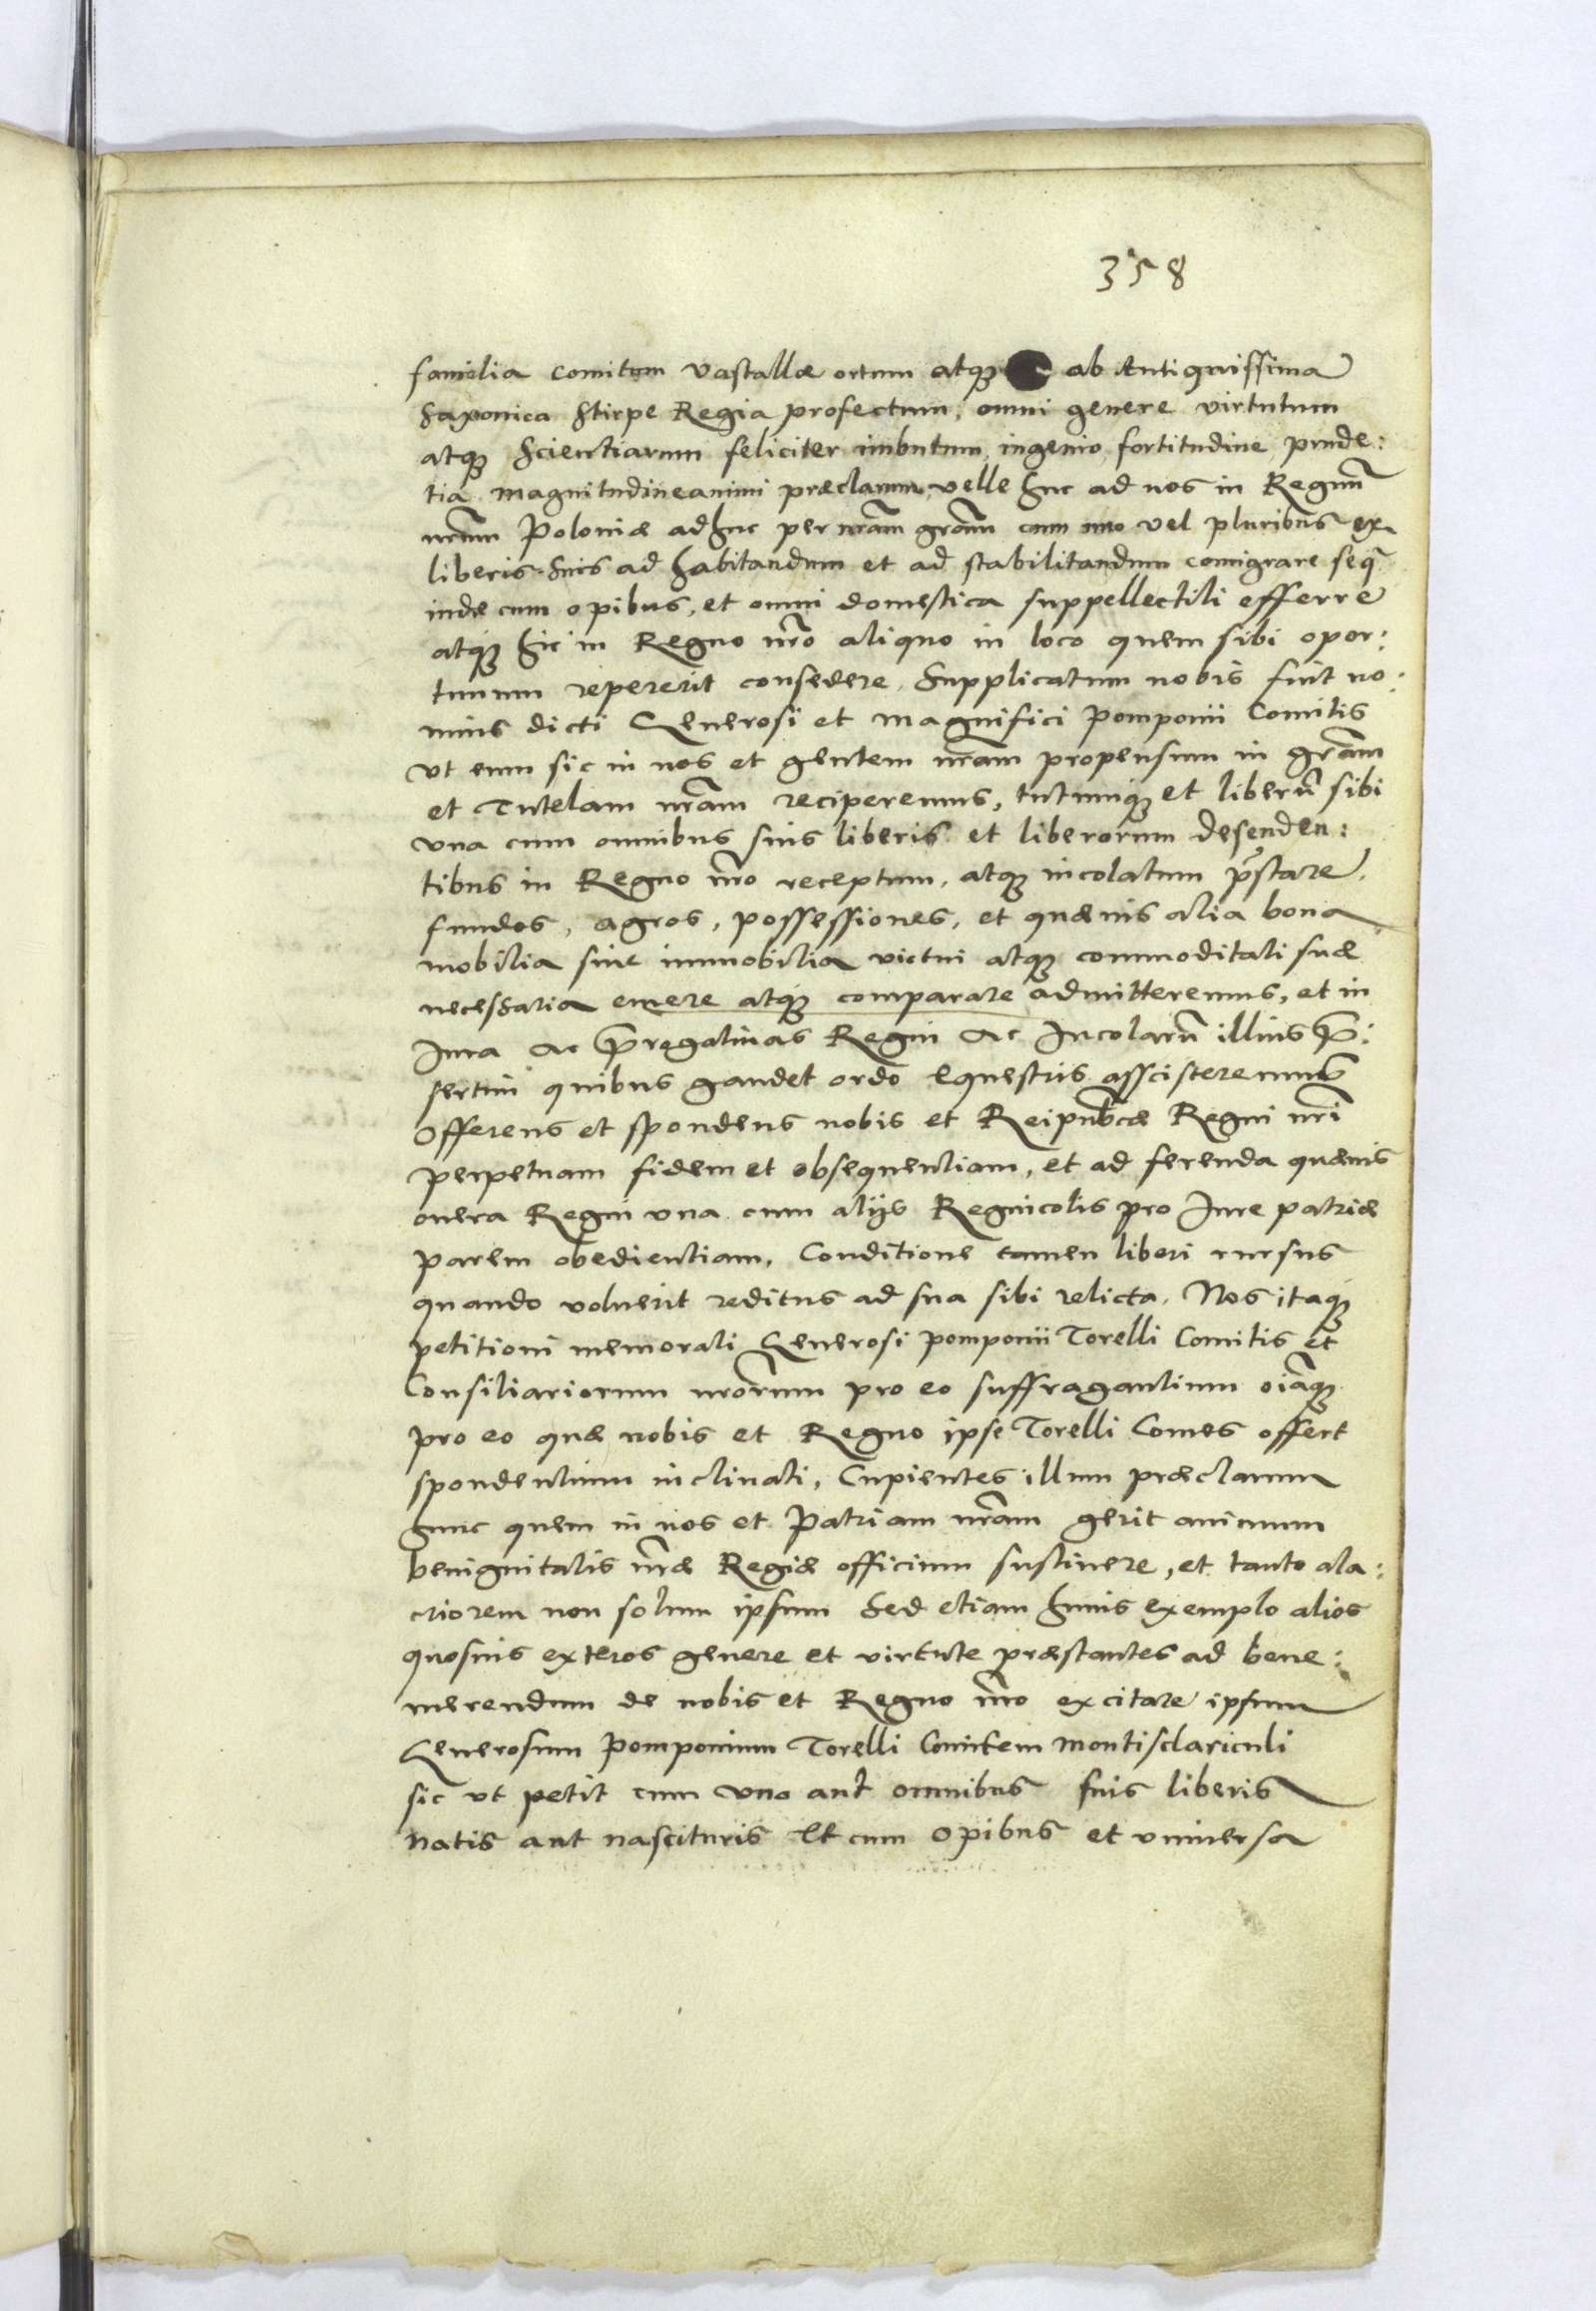 358
familia comitum Vastallæ ortum atq3 ab Antiquissima
Saxonica Stirpe Regia profectum, omni genere virtutum
atq3 Scientiarum feliciter imbutum, ingenio, fortitudine prude:
tia magnitudineanimi præclarum, velle huc ad nos in Regnū
nr̄um Poloniæ adhuc per nr̄am gr̄am cum uno vel pluribus ex
liberis suis ad habitandum et ad stabilitandum comigrare seq̄
inde cum opibus, et omni domestica suppellectili efferre
atq3 hic in Regno nr̄o aliquo in loco quem sibi opor:
tunum repererit consedere. Supplicatum nobis fuit no:
minis dicti Generosi et magnifici Pomponii Comitis
vt eum sic in nos et gentem nr̄am propensum in gr̄am
et Tutelam nr̄am reciperemus, tutumq3 et liberū sibi
vna cum omnibus suis liberis et liberorum desenden:
tibus in Regno nr̄o receptum, atq3 incolatum p̄stare.
fundos, agros, possessiones, et quævis alia bona
mobilia siue immobilia victui atq3 commoditati suæ
necessaria emere atq3 comparare admitteremus, et in
Jura ac p̄rogatiuas Regni ac Incolarū illius p̄:
sertim quibus gaudet ordo Equestris asscisceremus
Offerens et spondens nobis et Reipub̄cæ Regni nr̄i
perpetuam fidem et obsequentiam, et ad ferenda quævis
onera Regni vna cum alijs Regnicolis pro Jure patriæ
parem obedientiam, Conditione tamen liberi rursus
quando voluerit reditus ad sua sibi relicta. Nos itaq3
petitioni memorati Generosi Pomponii Torelli Comitis et
Consiliariorum nr̄orum pro eo suffragantium oīaq3
pro eo quæ nobis et Regno ipse Torelli Comes offert
spondentium inclinati, Cupientes illum præclarum
hunc quem in nos et Patriam nr̄am gerit animum
benignitatis nr̄æ Regiæ officium sustinere, et tanto ala:
criorem non solum ipsum Sed etiam huius exemplo alios
quosuis exteros genere et virtute præstantes ad bene:
merendum de nobis et Regno nr̄o excitare ipsum
Generosum Pomponium Torelli Comitem Montisclariculi
sic vt petit cum vno aut omnibus suis liberis
natis aut nascituris Et cum opibus et vniversa